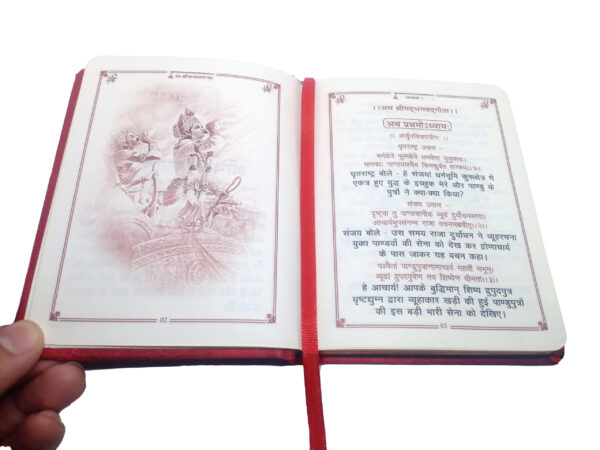 02
।।अथ श्रीमद्भगवद्गीता।।
अथ प्रथमोऽध्यायः
।। अर्जुनविषादयोगः ।।
धृतराष्ट्र उवाच -
धर्मक्षेत्रे कुरुक्षेत्रे समवेता युयुत्सवः।
मामकाः पाण्डवाश्चैव किमकुर्वत सञ्जय।।१।।
धृतराष्ट्र बोले - हे संजय! धर्मभूमि कुरुक्षेत्र में
एकत्र हुए युद्ध के इच्छुक मेरे और पाण्डु के
पुत्रों ने क्या-क्या किया?
संजय उवाच -
दृष्ट्वा तु पाण्डवानीकं व्यूढं दुर्योधनस्तदा।
आचार्यमुपसंगम्य राजा वचनमब्रवीत्।।२।।
संजय बोले - उस समय राजा दुर्योधन ने व्यूहरचना
युक्त पाण्डवों की सेना को देख कर द्रोणाचार्य
के पास जाकर यह वचन कहा।
पश्यैतां पाण्डुपुत्राणामाचार्य महतीं चमूम्।
व्यूढां द्रुपदपुत्रेण तव शिष्येण धीमता।।३।।
हे आचार्य! आपके बुद्धिमान् शिष्य द्रुपदपुत्र
धृष्टद्युम्न द्वारा व्यूहाकार खड़ी की हुई पाण्डुपुत्रों
की इस बड़ी भारी सेना को देखिए।
03